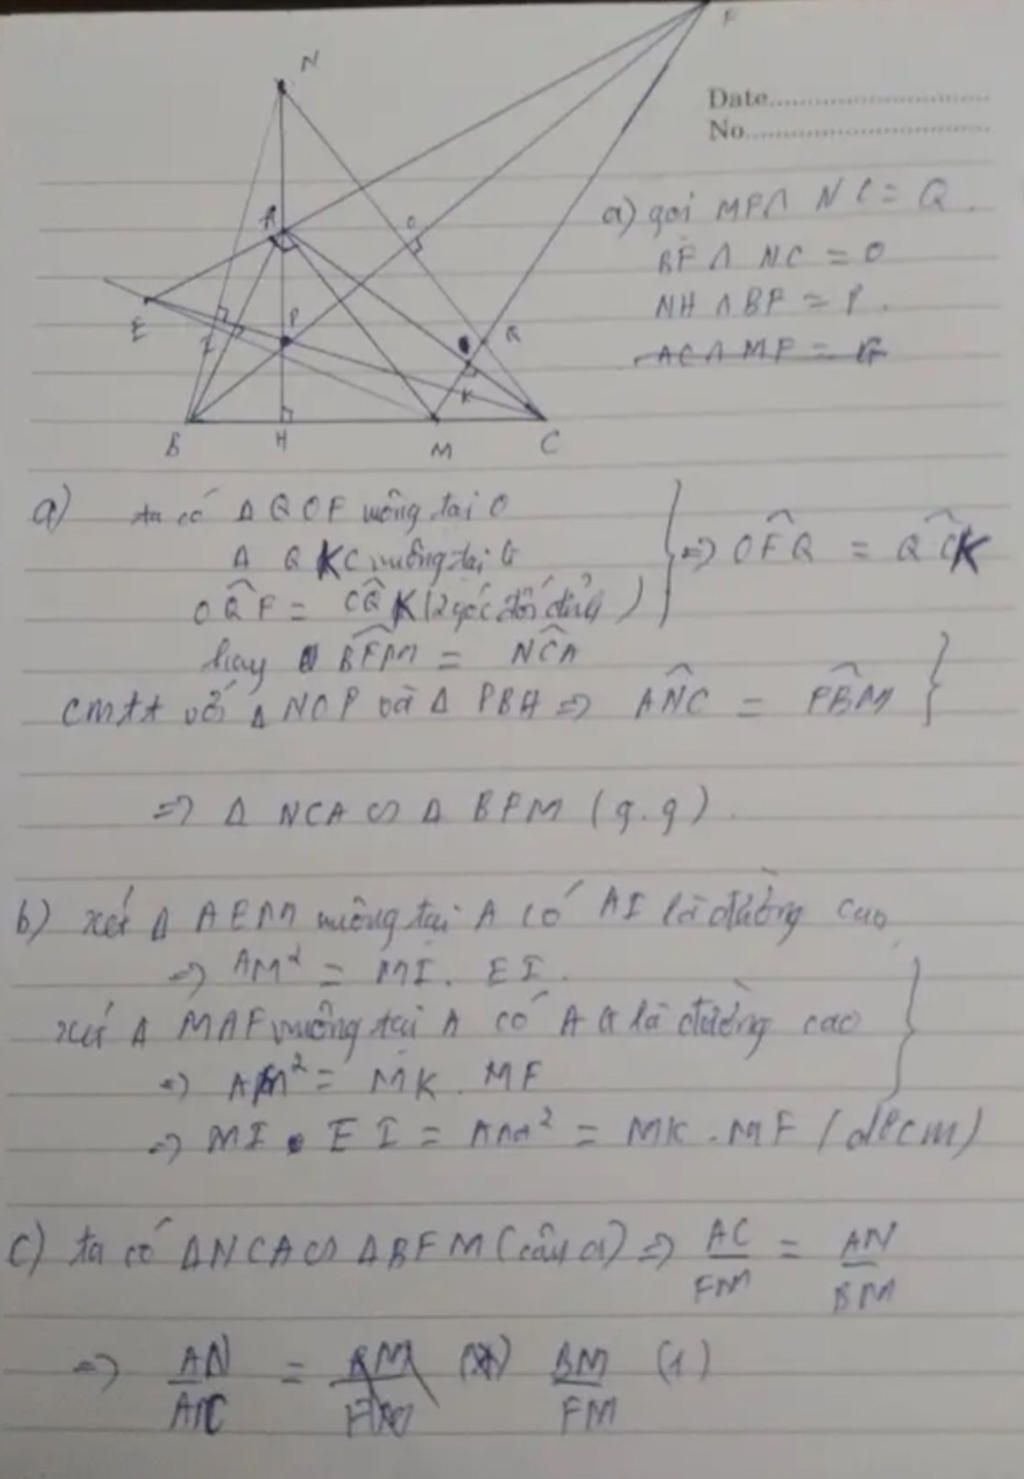 N
F
Date
No
A
O
E
I
P
Q
K
B
H
M
C
a) gọi MF ∩ NC = Q.
BF ∩ NC = O
NH ∩ BF = P.
AC ∩ MF = G
a) ta có Δ QOF vuông tại O
Δ QKC vuông tại G
OQ̂F = CQ̂K (2 góc đối đỉnh) } => OF̂Q = QĈK
hay BF̂M = NĈA
cmtt với Δ NOP và Δ PBH => AN̂C = PB̂M }
=> Δ NCA ∽ Δ BFM (g.g).
b) xét Δ AEM vuông tại A có AI là đường cao
=> AM² = MI. EI.
xét Δ MAF vuông tại A có AG là đường cao
=> AM² = MK. MF
=> MI . EI = AM² = MK . MF (đpcm)
c) ta có ΔNCA ∽ ΔBFM (câu a) => AC/FM = AN/BM
=> AN/AC = BM/FM (*) BM/FM (1)